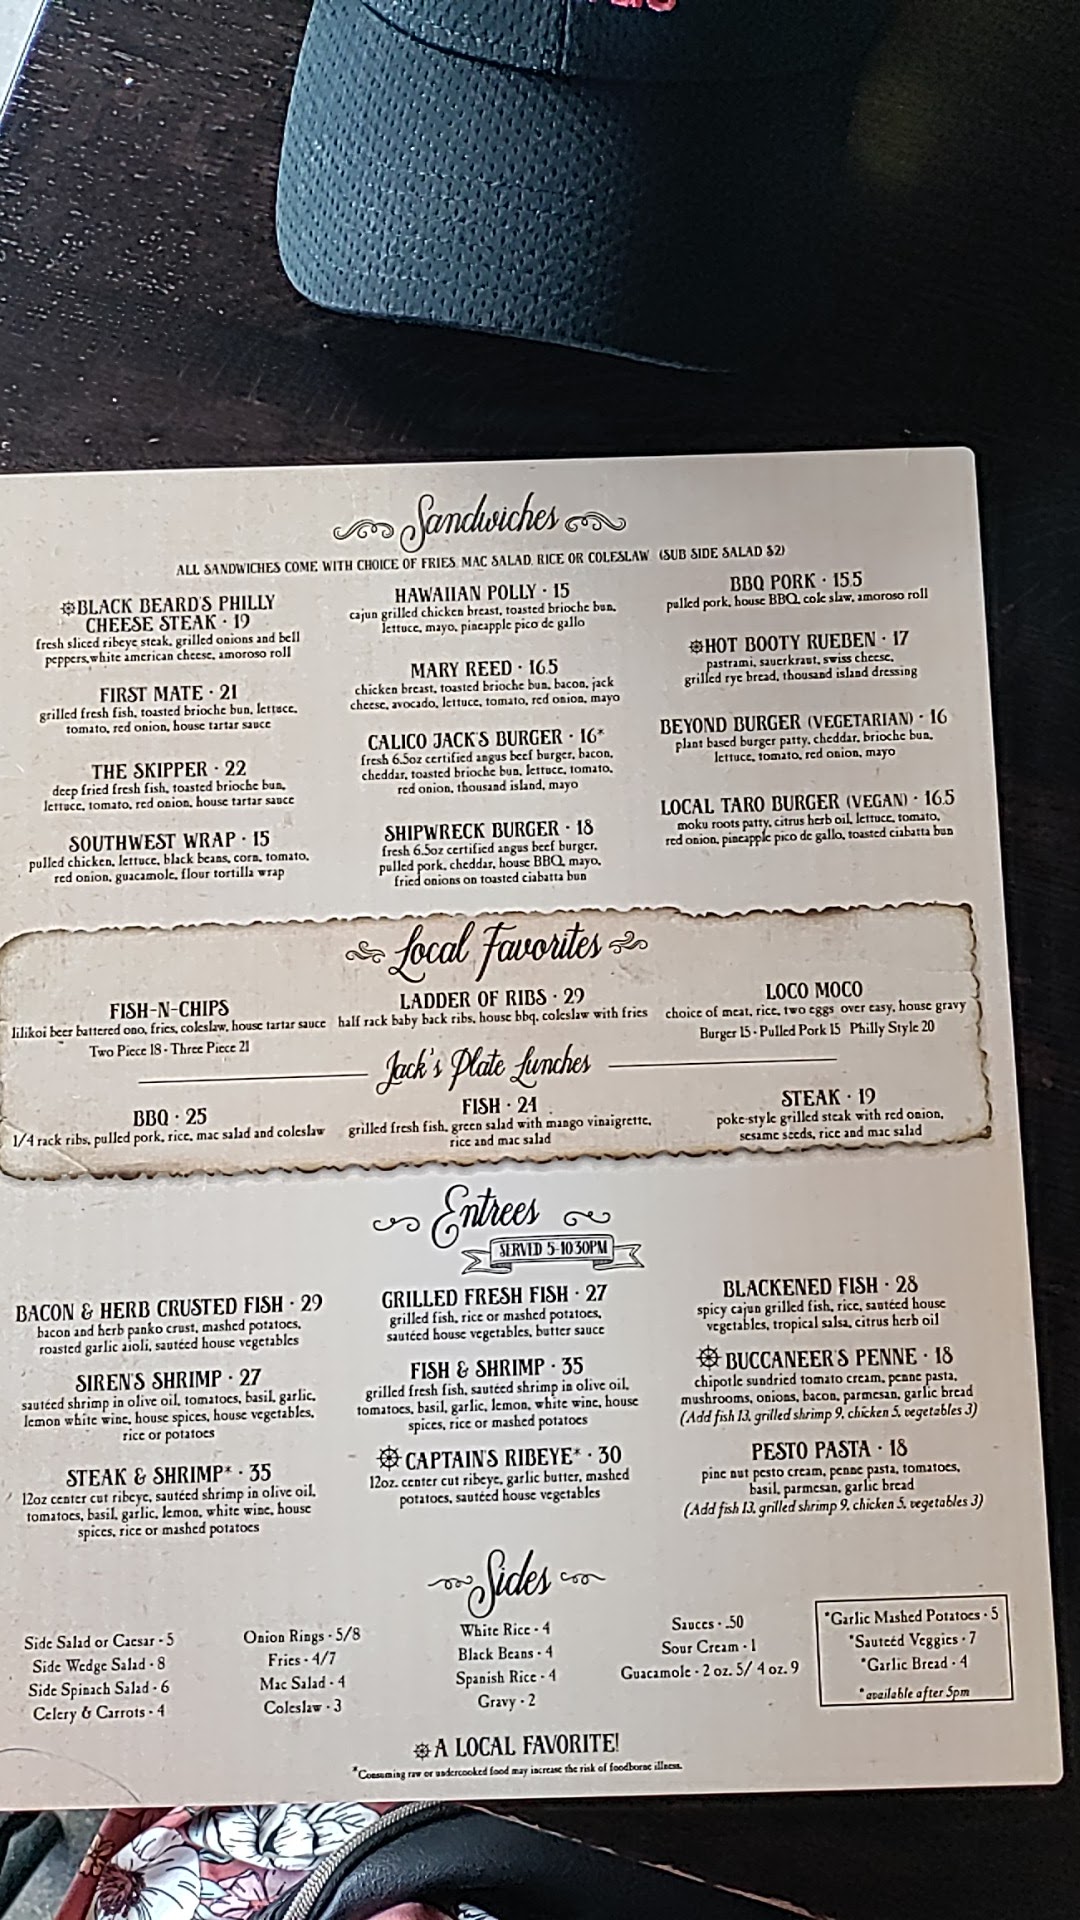 Sandwiches
ALL SANDWICHES COME WITH CHOICE OF FRIES, MAC SALAD, RICE OR COLESLAW (SUB SIDE SALAD $2)
BLACK BEARD'S PHILLY
CHEESE STEAK · 19
fresh sliced ribeye steak, grilled onions and bell
peppers, white american cheese, amoroso roll
FIRST MATE · 21
grilled fresh fish, toasted brioche bun, lettuce,
tomato, red onion, house tartar sauce
THE SKIPPER · 22
deep fried fresh fish, toasted brioche bun,
lettuce, tomato, red onion, house tartar sauce
SOUTHWEST WRAP · 15
pulled chicken, lettuce, black beans, corn, tomato,
red onion, guacamole, flour tortilla wrap
HAWAIIAN POLLY · 15
cajun grilled chicken breast, toasted brioche bun,
lettuce, mayo, pineapple pico de gallo
MARY REED · 16.5
chicken breast, toasted brioche bun, bacon, jack
cheese, avocado, lettuce, tomato, red onion, mayo
CALICO JACK'S BURGER · 16*
fresh 6.5oz certified angus beef burger, bacon,
cheddar, toasted brioche bun, lettuce, tomato,
red onion, thousand island, mayo
SHIPWRECK BURGER · 18
fresh 6.5oz certified angus beef burger,
pulled pork, cheddar, house BBQ, mayo,
fried onions on toasted ciabatta bun
BBQ PORK · 15.5
pulled pork, house BBQ, cole slaw, amoroso roll
HOT BOOTY RUEBEN · 17
pastrami, sauerkraut, swiss cheese,
grilled rye bread, thousand island dressing
BEYOND BURGER (VEGETARIAN) · 16
plant based burger patty, cheddar, brioche bun,
lettuce, tomato, red onion, mayo
LOCAL TARO BURGER (VEGAN) · 16.5
moku roots patty, citrus herb oil, lettuce, tomato,
red onion, pineapple pico de gallo, toasted ciabatta bun
Local Favorites
FISH-N-CHIPS
lilikoi beer battered ono, fries, coleslaw, house tartar sauce
Two Piece 18 · Three Piece 21
LADDER OF RIBS · 29
half rack baby back ribs, house bbq, coleslaw with fries
LOCO MOCO
choice of meat, rice, two eggs over easy, house gravy
Burger 15 · Pulled Pork 15 Philly Style 20
Jack's Plate Lunches
BBQ · 25
1/4 rack ribs, pulled pork, rice, mac salad and coleslaw
FISH · 24
grilled fresh fish, green salad with mango vinaigrette,
rice and mac salad
STEAK · 19
poke-style grilled steak with red onion,
sesame seeds, rice and mac salad
Entrees
SERVED 5-10:30PM
BACON & HERB CRUSTED FISH · 29
bacon and herb panko crust, mashed potatoes,
roasted garlic aioli, sautéed house vegetables
SIREN'S SHRIMP · 27
sautéed shrimp in olive oil, tomatoes, basil, garlic,
lemon white wine, house spices, house vegetables,
rice or potatoes
STEAK & SHRIMP* · 35
12oz center cut ribeye, sautéed shrimp in olive oil,
tomatoes, basil, garlic, lemon, white wine, house
spices, rice or mashed potatoes
GRILLED FRESH FISH · 27
grilled fish, rice or mashed potatoes,
sautéed house vegetables, butter sauce
FISH & SHRIMP · 35
grilled fresh fish, sautéed shrimp in olive oil,
tomatoes, basil, garlic, lemon, white wine, house
spices, rice or mashed potatoes
CAPTAIN'S RIBEYE* · 30
12oz. center cut ribeye, garlic butter, mashed
potatoes, sautéed house vegetables
BLACKENED FISH · 28
spicy cajun grilled fish, rice, sautéed house
vegetables, tropical salsa, citrus herb oil
BUCCANEER'S PENNE · 18
chipotle sundried tomato cream, penne pasta,
mushrooms, onions, bacon, parmesan, garlic bread
(Add fish 13, grilled shrimp 9, chicken 5, vegetables 3)
PESTO PASTA · 18
pine nut pesto cream, penne pasta, tomatoes,
basil, parmesan, garlic bread
(Add fish 13, grilled shrimp 9, chicken 5, vegetables 3)
Sides
Side Salad or Caesar · 5
Side Wedge Salad · 8
Side Spinach Salad · 6
Celery & Carrots · 4
Onion Rings · 5/8
Fries · 4/7
Mac Salad · 4
Coleslaw · 3
White Rice · 4
Black Beans · 4
Spanish Rice · 4
Gravy · 2
Sauces · .50
Sour Cream · 1
Guacamole · 2 oz. 5/ 4 oz. 9
*Garlic Mashed Potatoes · 5
*Sautéed Veggies · 7
*Garlic Bread · 4
*available after 5pm
A LOCAL FAVORITE!
*Consuming raw or undercooked food may increase the risk of foodborne illness.